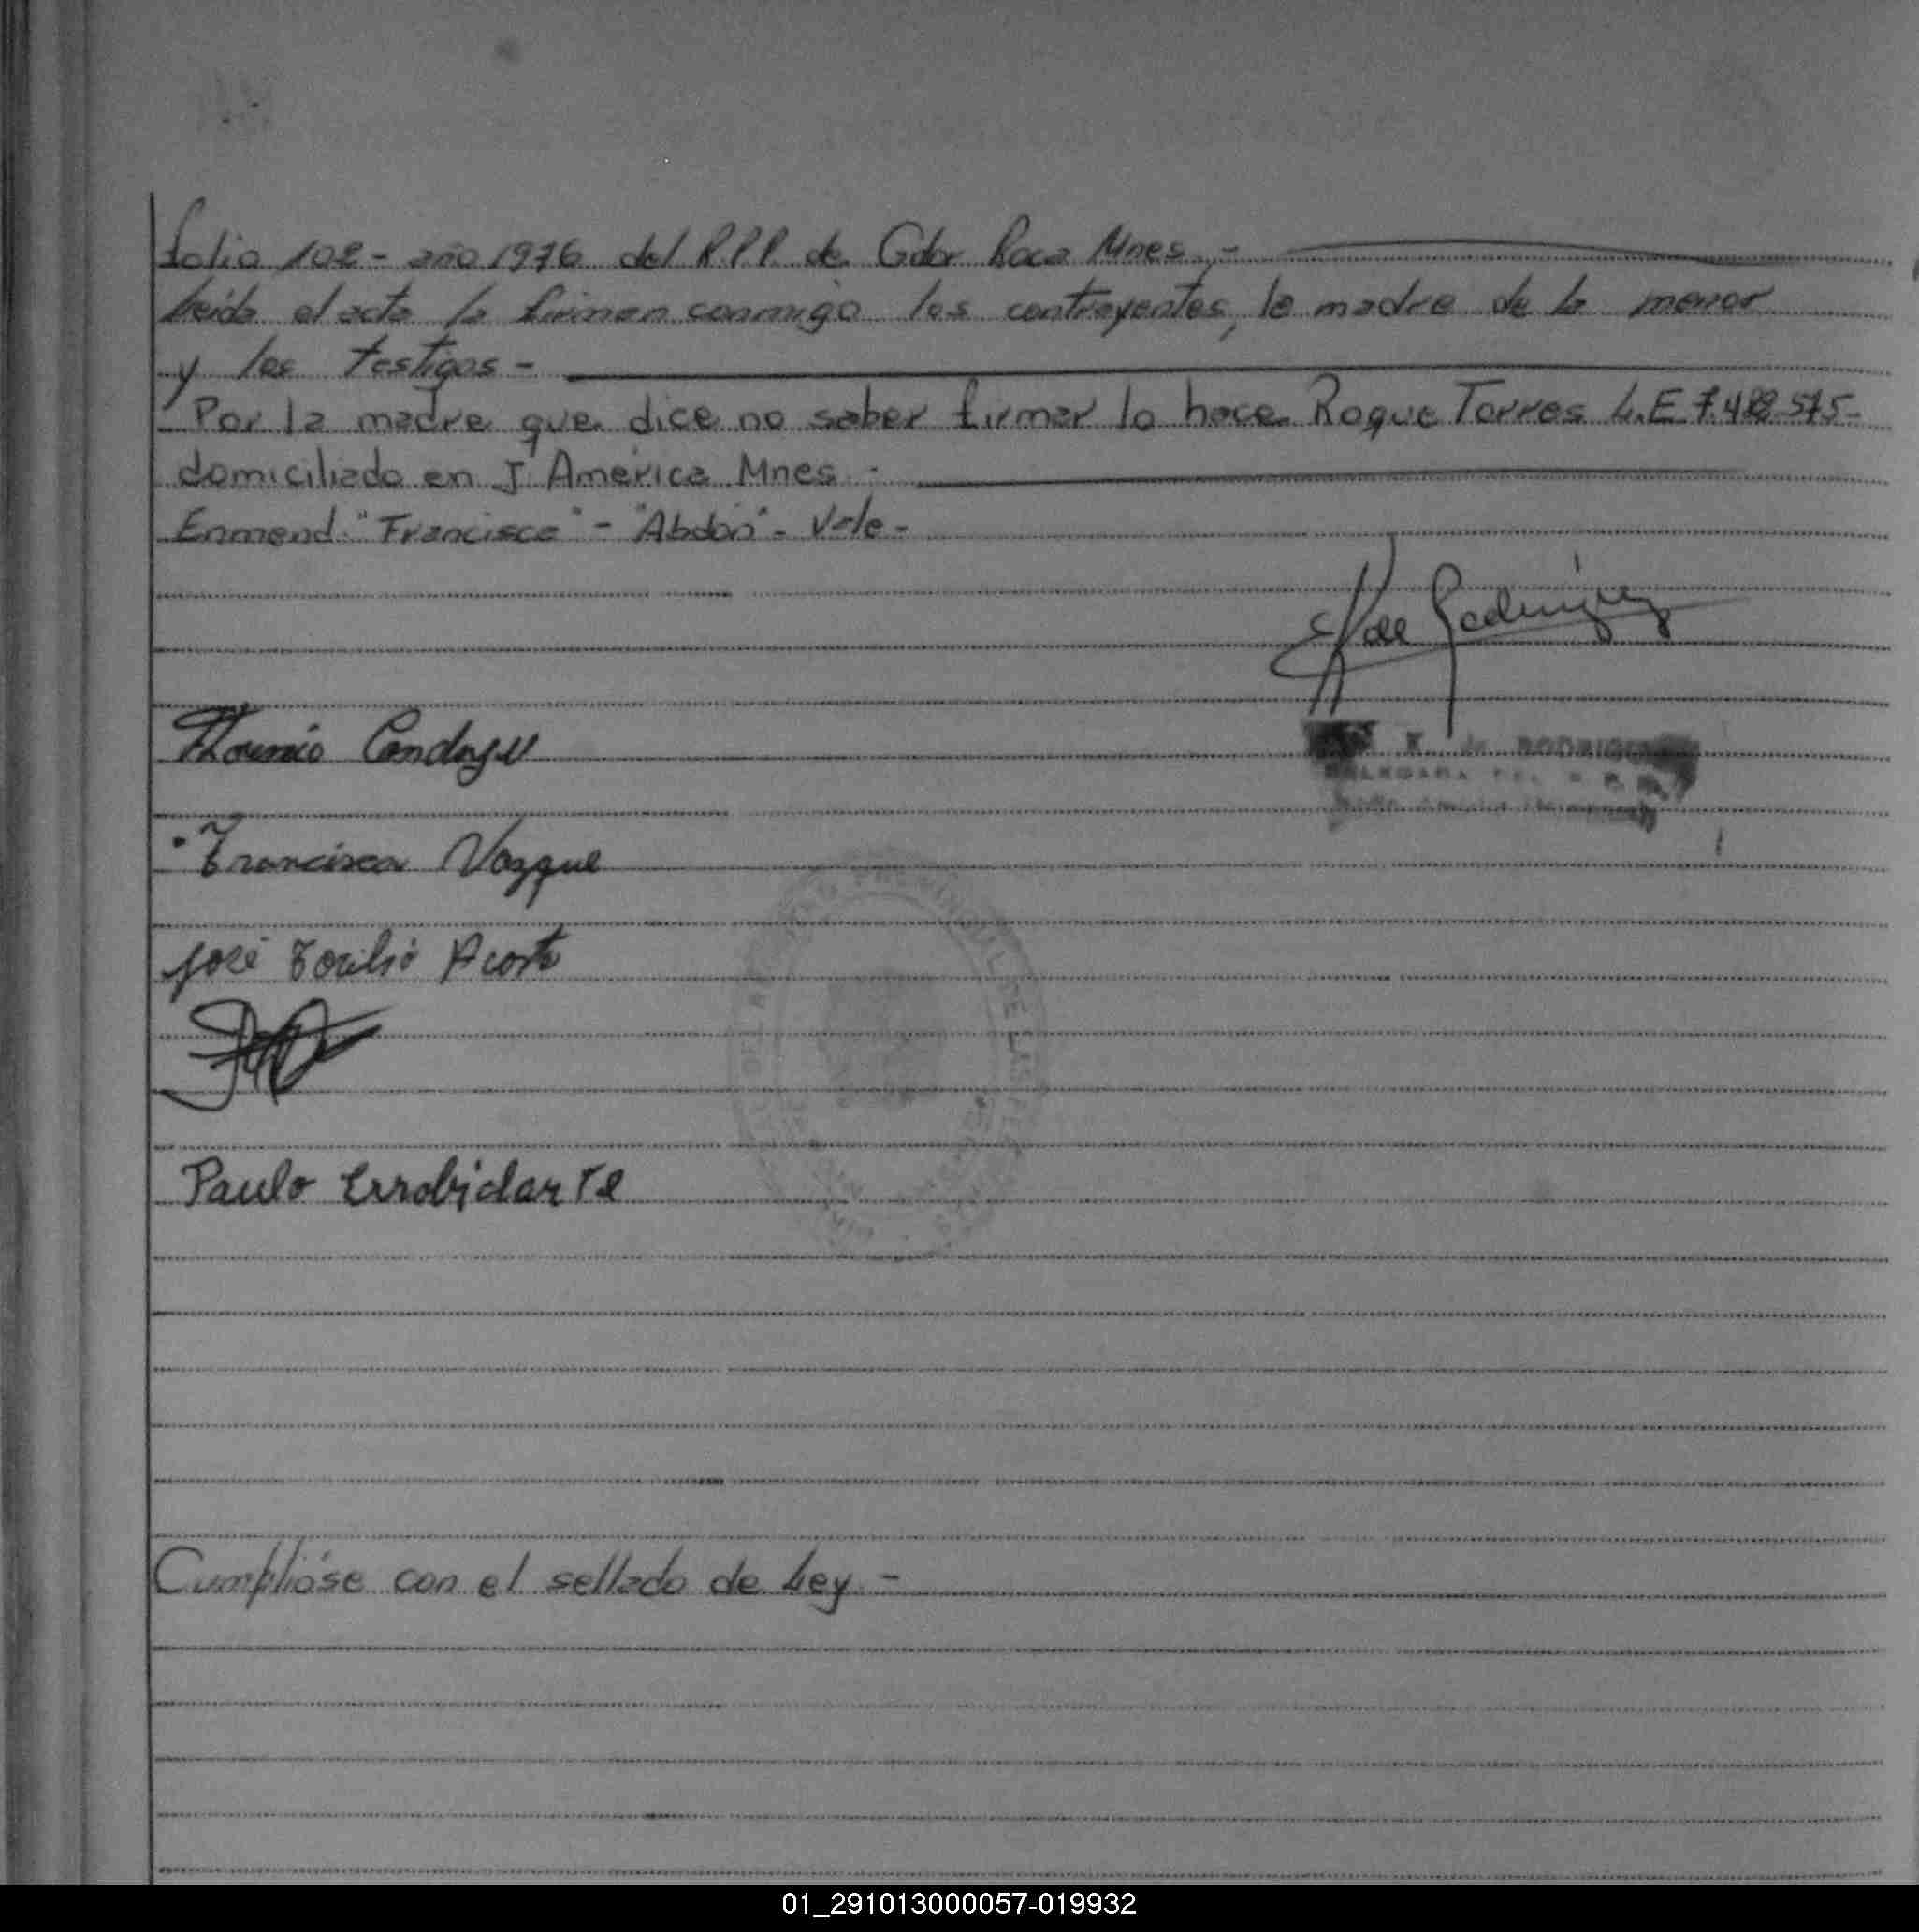 folio 102 - año 1976 del R.P.P. de Gdor Roca Mnes.-
Leída el acta la firman conmigo los contrayentes, la madre de la menor
y los testigos -
Por la madre que dice no saber firmar lo hace Roque Torres L.E 7.482.575-
domiciliado en J. América Mnes.-
Enmend. "Francisca" - "Abdón" - Vale -
de Rodriguez
K. de RODRIGUEZ
DELEGADA DEL R. P. P.
Francisca Vazque
José Toribio Acosta
Paulo Errobidarte
Cumplióse con el sellado de Ley -
01_291013000057-019932